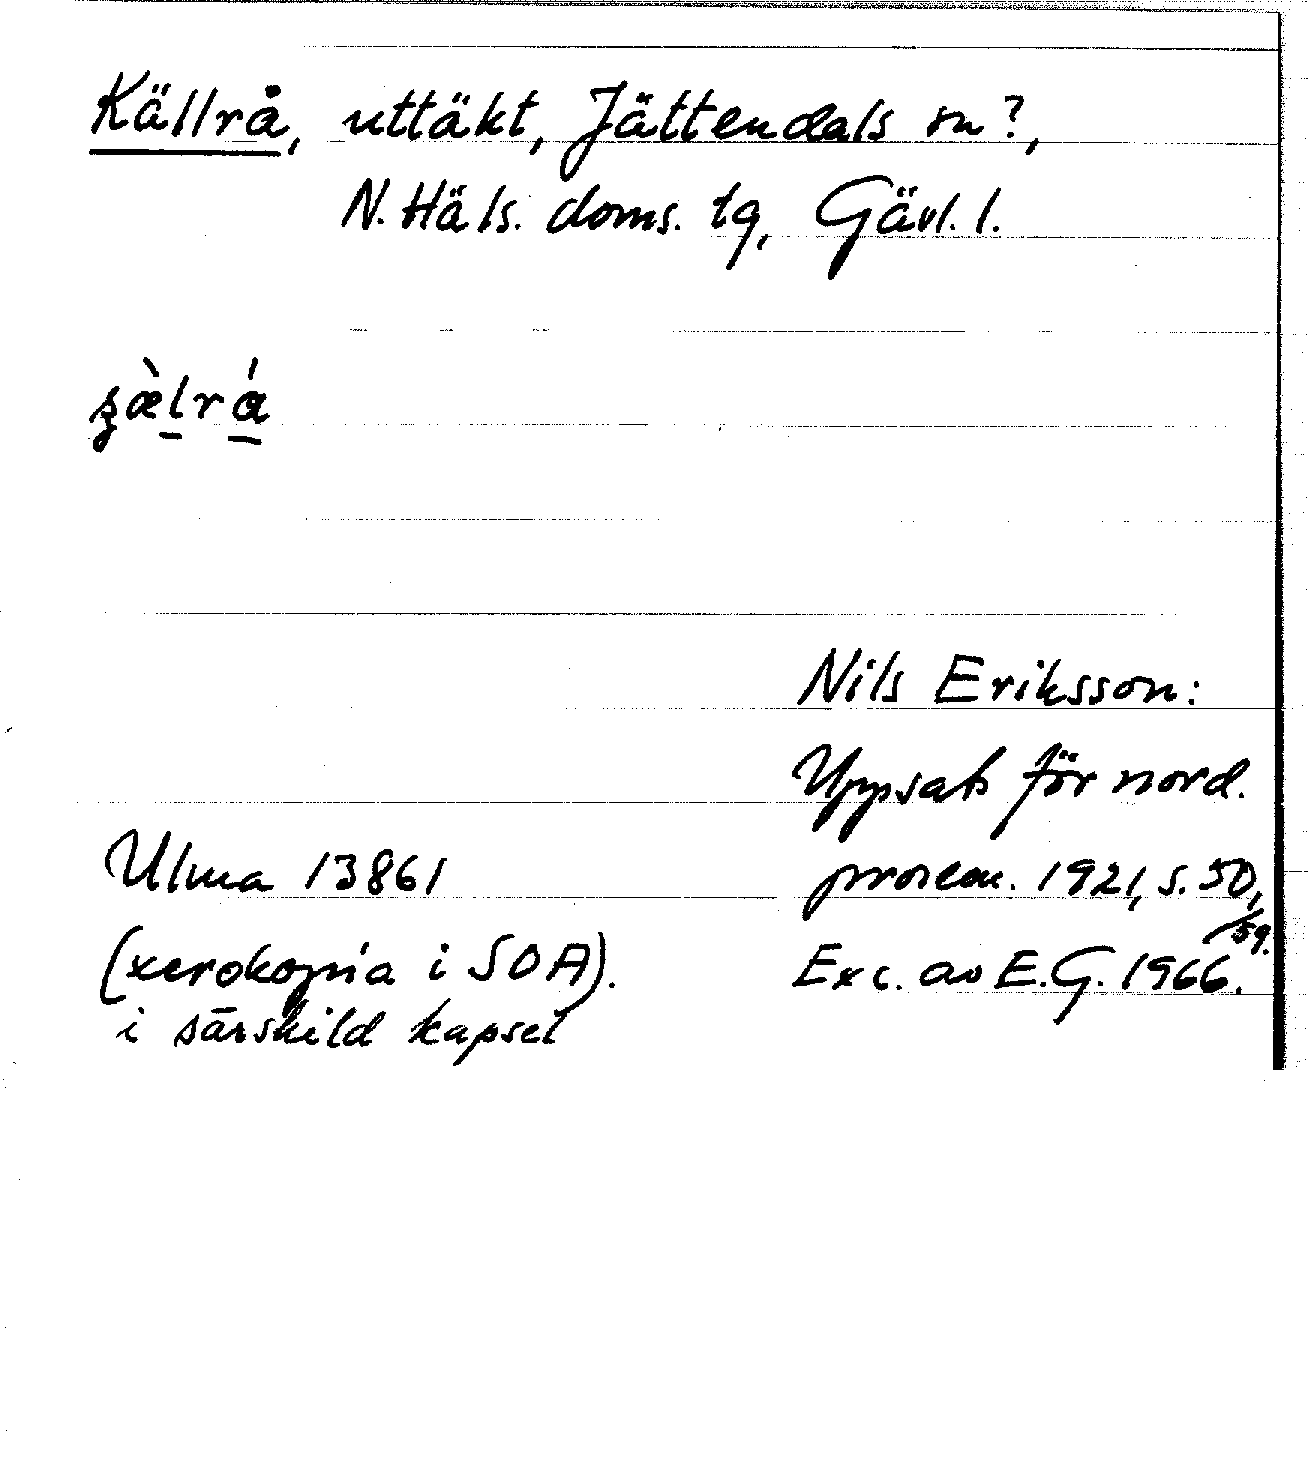 Källrå, uttäkt, Jättendals sn?,
N. Häls. doms. tg, Gävl. l.
Nils Eriksson:
Uppsats för nord.
prosem. 1921, s. 50,
/59.
Ulma 13861
(xerokopia i SOA).
Exc. av E.G. 1966.
i särskild kapsel